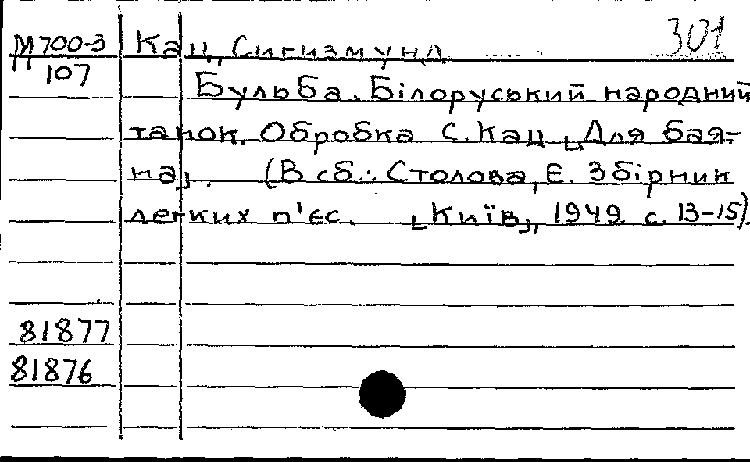 301
М700-3 Кац, Сигизмунд
107
Бульба. Білоруський народний
танок. Обробка С. Кац. [Для бая-
на]. (В сб.: Столова, Є. Збірник
легких п'єс. [Київ], 1949. с. 13-15)
81877
81876